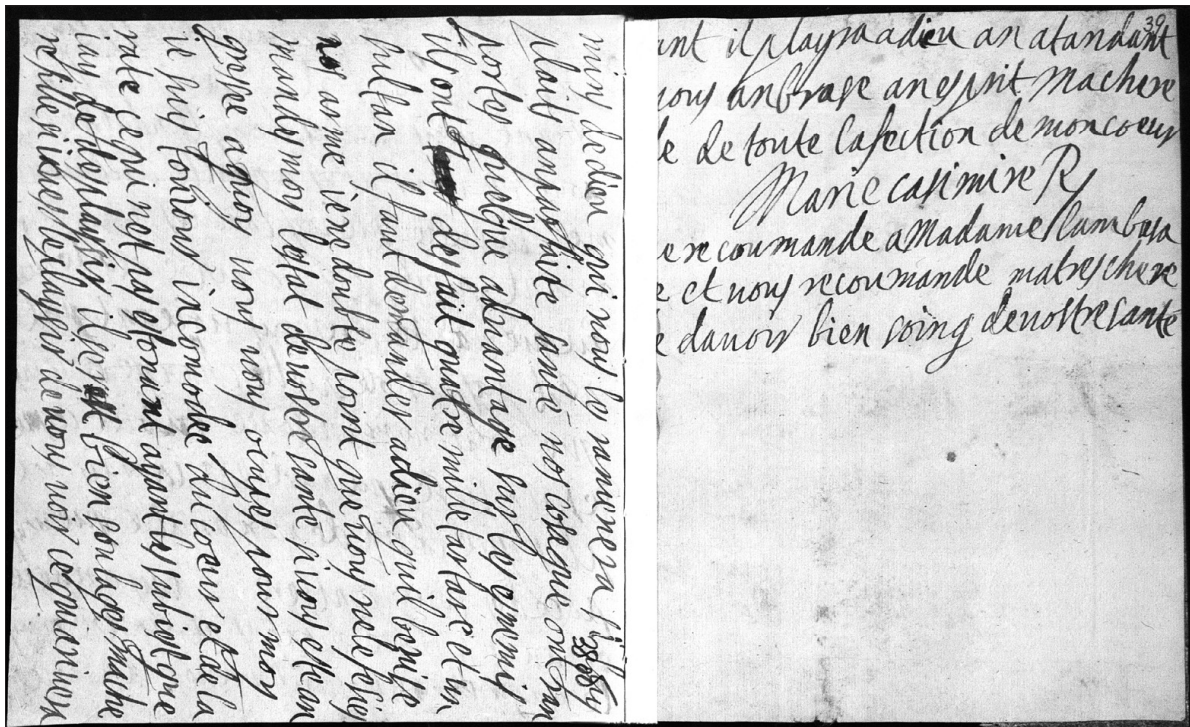 de dieu qui nous le ramenera
plait an parfaite santé nos cosaque ont ran
portes quelque abvantage sur les enemis
ils ont desfait quatre mille tartare et un
sultan il faut demander a dieu quil benise
nos arme ie ne doubte point que vous ne le fesies
mandes moy lestat de vostre sante si vous estes an
grosse pour moy
ie suis tousiours incomodee du coeur et de la
rate ce qui nest pas estonant ayant les subiet que
iay de desplaysir ie serest bien soulages ma che
re fille si iaues le playsir de vous voir ce qui
38
39
ant il playra adieu an atandant
vous anbrase an esprit ma chere
le de toute lafection de mon coeur
Marie casimire R
e recoumande a Madame lambasa
e et vous recoumande ma tres chere
e davoir bien soing de vostre sante